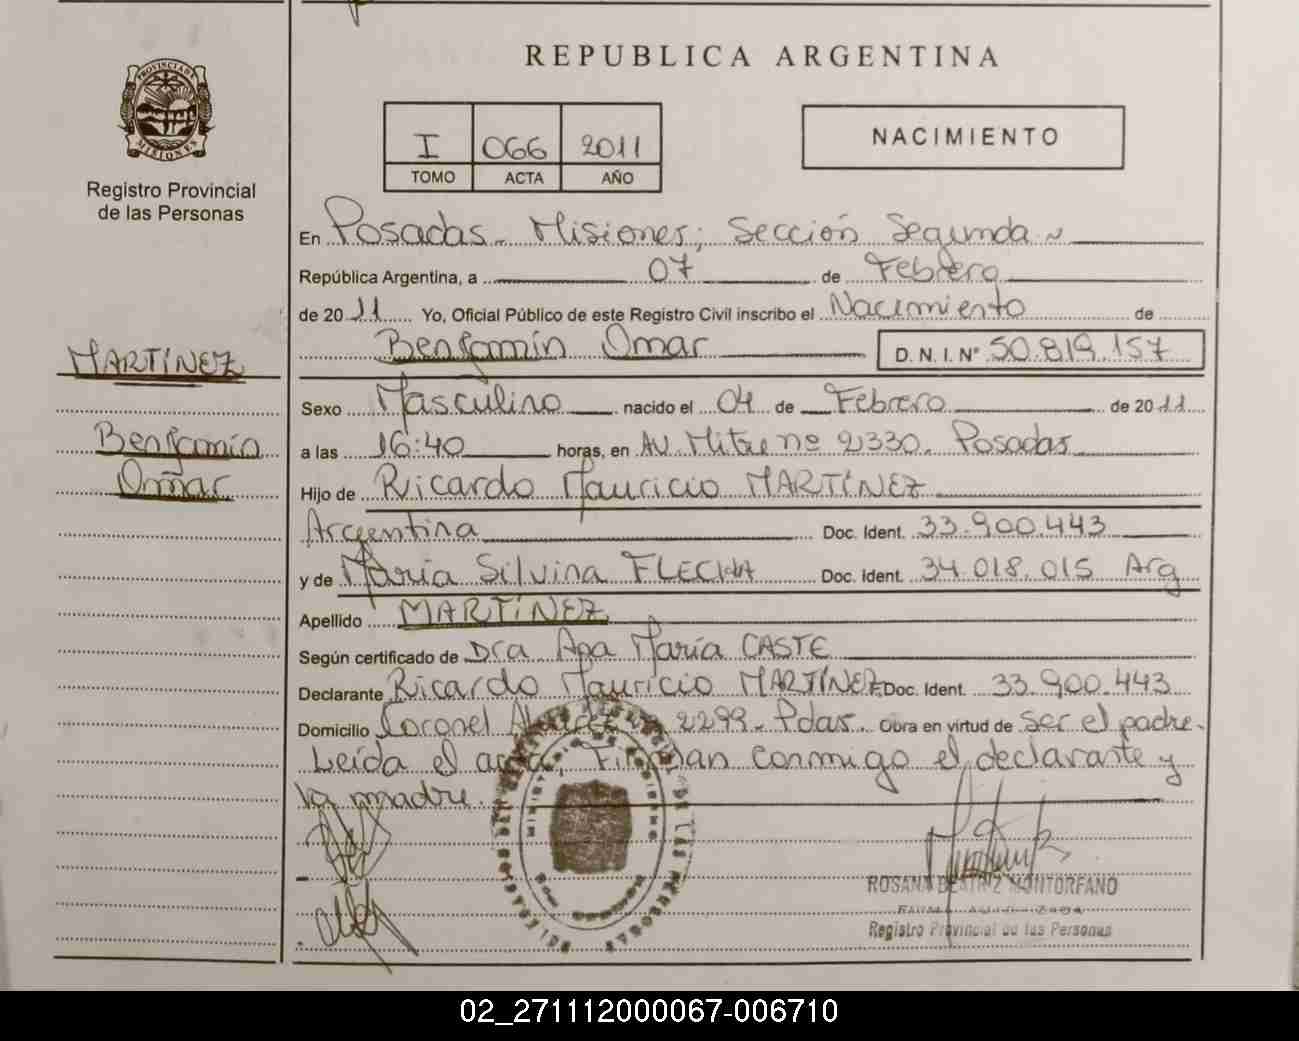 REPUBLICA ARGENTINA
PROVINCIA DE
MISIONES
Registro Provincial
de las Personas
I 066 2011
TOMO ACTA AÑO
NACIMIENTO
En Posadas - Misiones; Sección Segunda
República Argentina, a 07 de Febrero
de 2011 Yo, Oficial Público de este Registro Civil inscribo el Nacimiento de
Benjamín Omar D.N.I. Nº 50.819.157
MARTÍNEZ
Benjamín
Omar
Sexo Masculino nacido el 04 de Febrero de 2011
a las 16:40 horas, en AV. Mitre nº 2330. Posadas
Hijo de Ricardo Mauricio MARTÍNEZ
Argentina Doc. Ident. 33.900.443
y de María Silvina FLECHA Doc. Ident. 34.018.015 Arg
Apellido MARTÍNEZ
Según certificado de Dra Ana María CASTE
Declarante Ricardo Mauricio MARTÍNEZ Doc. Ident. 33.900.443
Domicilio Coronel 2299 - Pdas. Obra en virtud de Ser el padre.
Leída el acta, Firman conmigo el declarante y
la madre.
ROSANA BEATRIZ MONTORFANO
Registro Provincial de las Personas
02_271112000067-006710